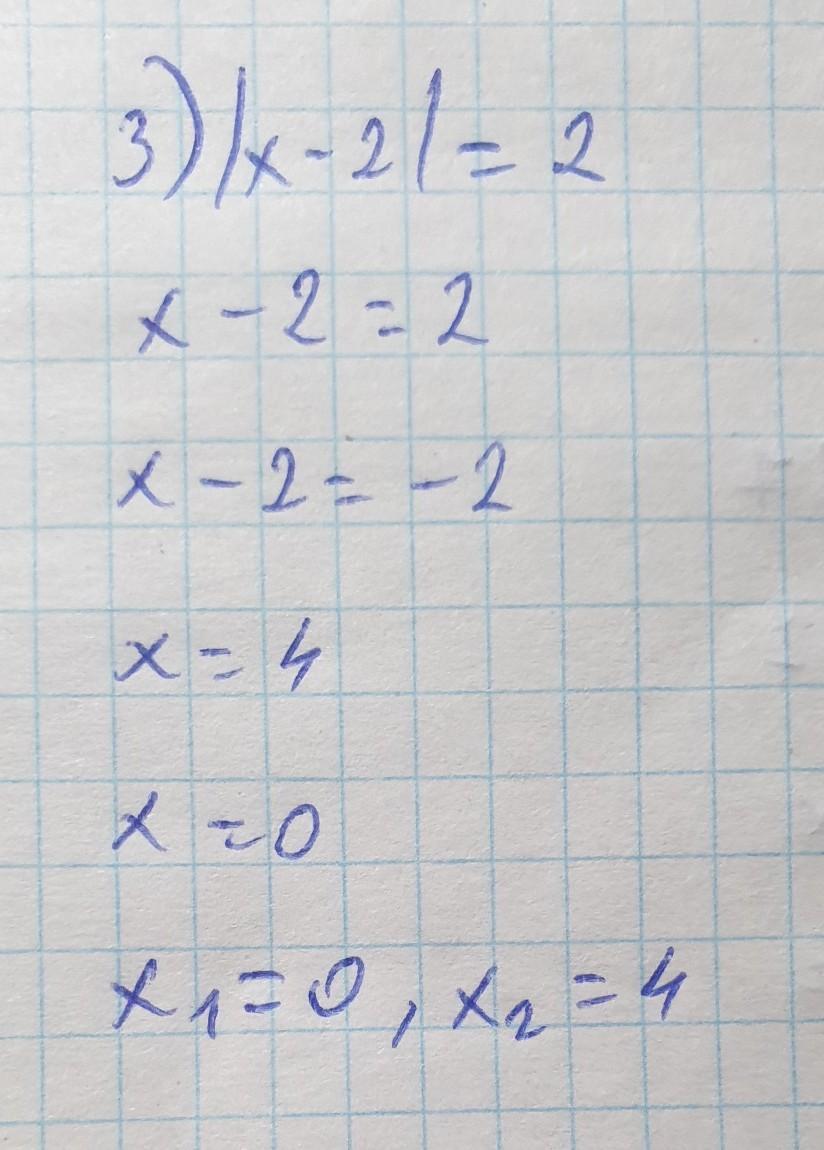 3) |x - 2| = 2
x - 2 = 2
x - 2 = - 2
x = 4
x = 0
x₁ = 0, x₂ = 4